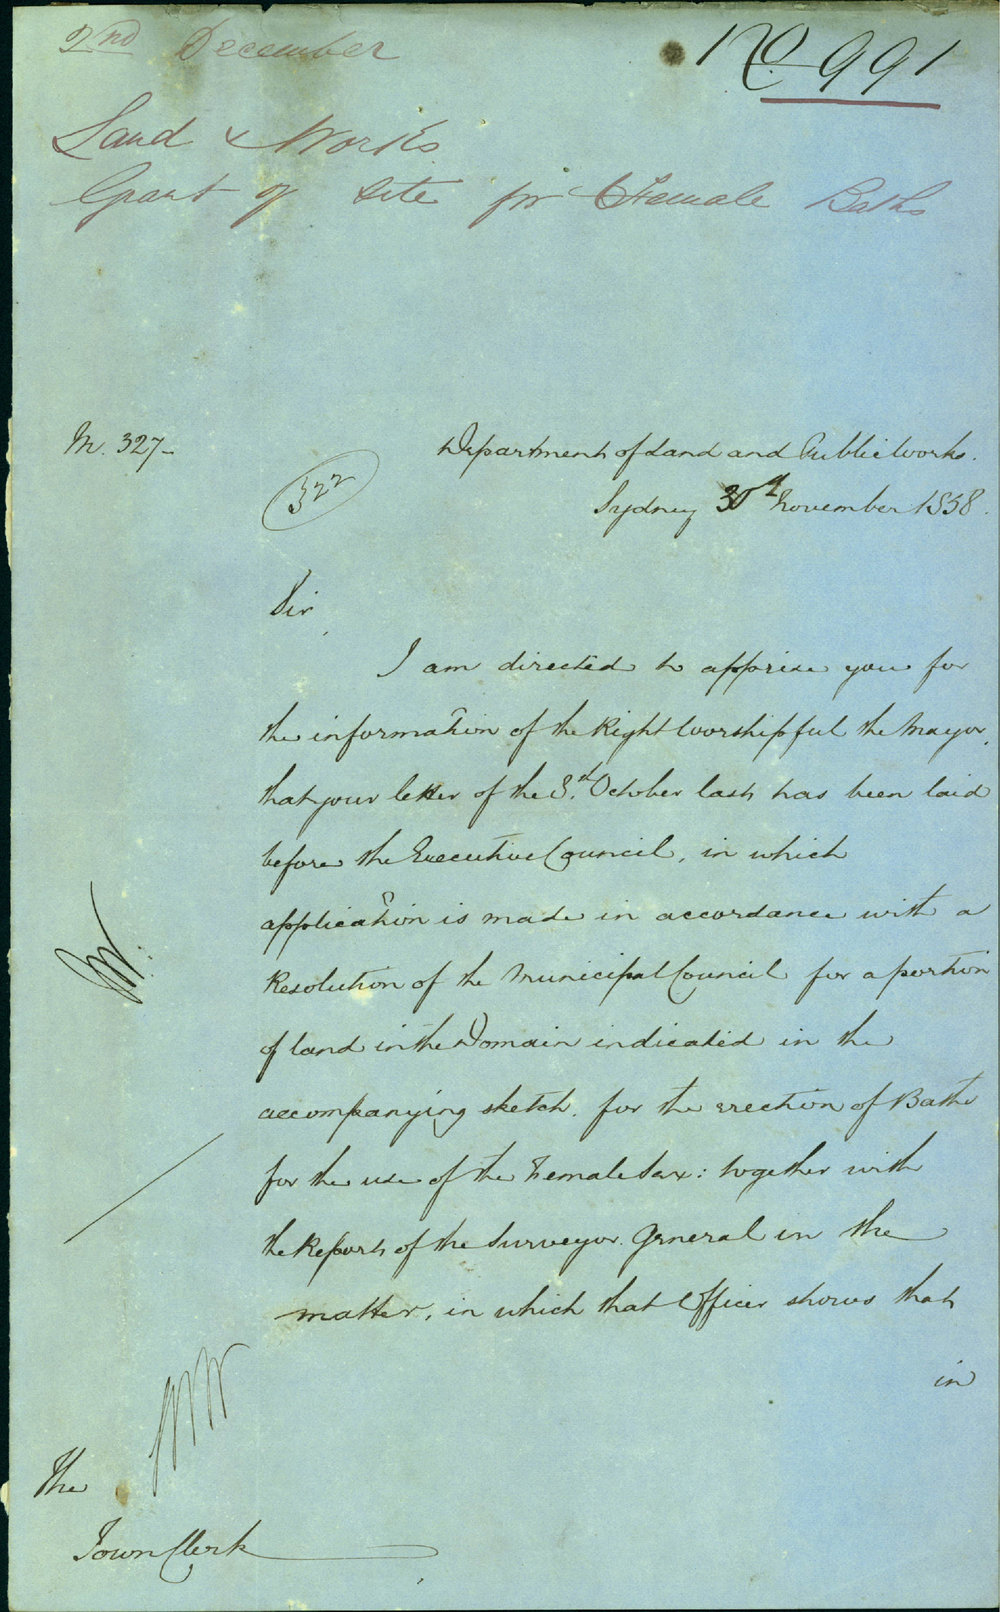 2nd December
No 991
Land & Works
Grant of Site for Female Baths
M. 327-
322
Department of Land and Public Works.
Sydney 30th November 1858.
Sir,
I am directed to apprise you for
the information of the Right Worshipful the Mayor,
that your letter of the 8th October last has been laid
before the Executive Council, in which
application is made in accordance with a
Resolution of the Municipal Council for a portion
of land in the Domain indicated in the
accompanying sketch. for the erection of Baths
for the use of the Female Sex: together with
the Report of the Surveyor General in the
matter, in which that Officer shows that
in
The
Town Clerk